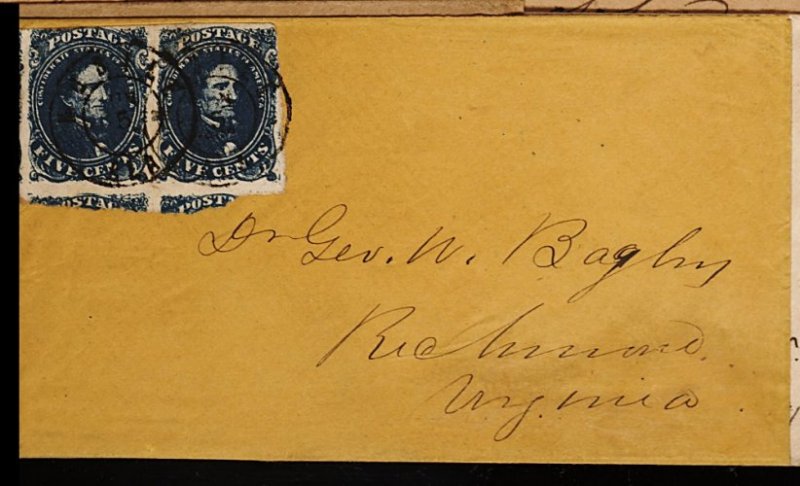 POSTAGE POSTAGE
CONFEDERATE STATES OF AMERICA CONFEDERATE STATES OF AMERICA
FIVE CENTS FIVE CENTS
POSTA POSTA
Dr Geo. W. Bagby
Richmond.
Virginia